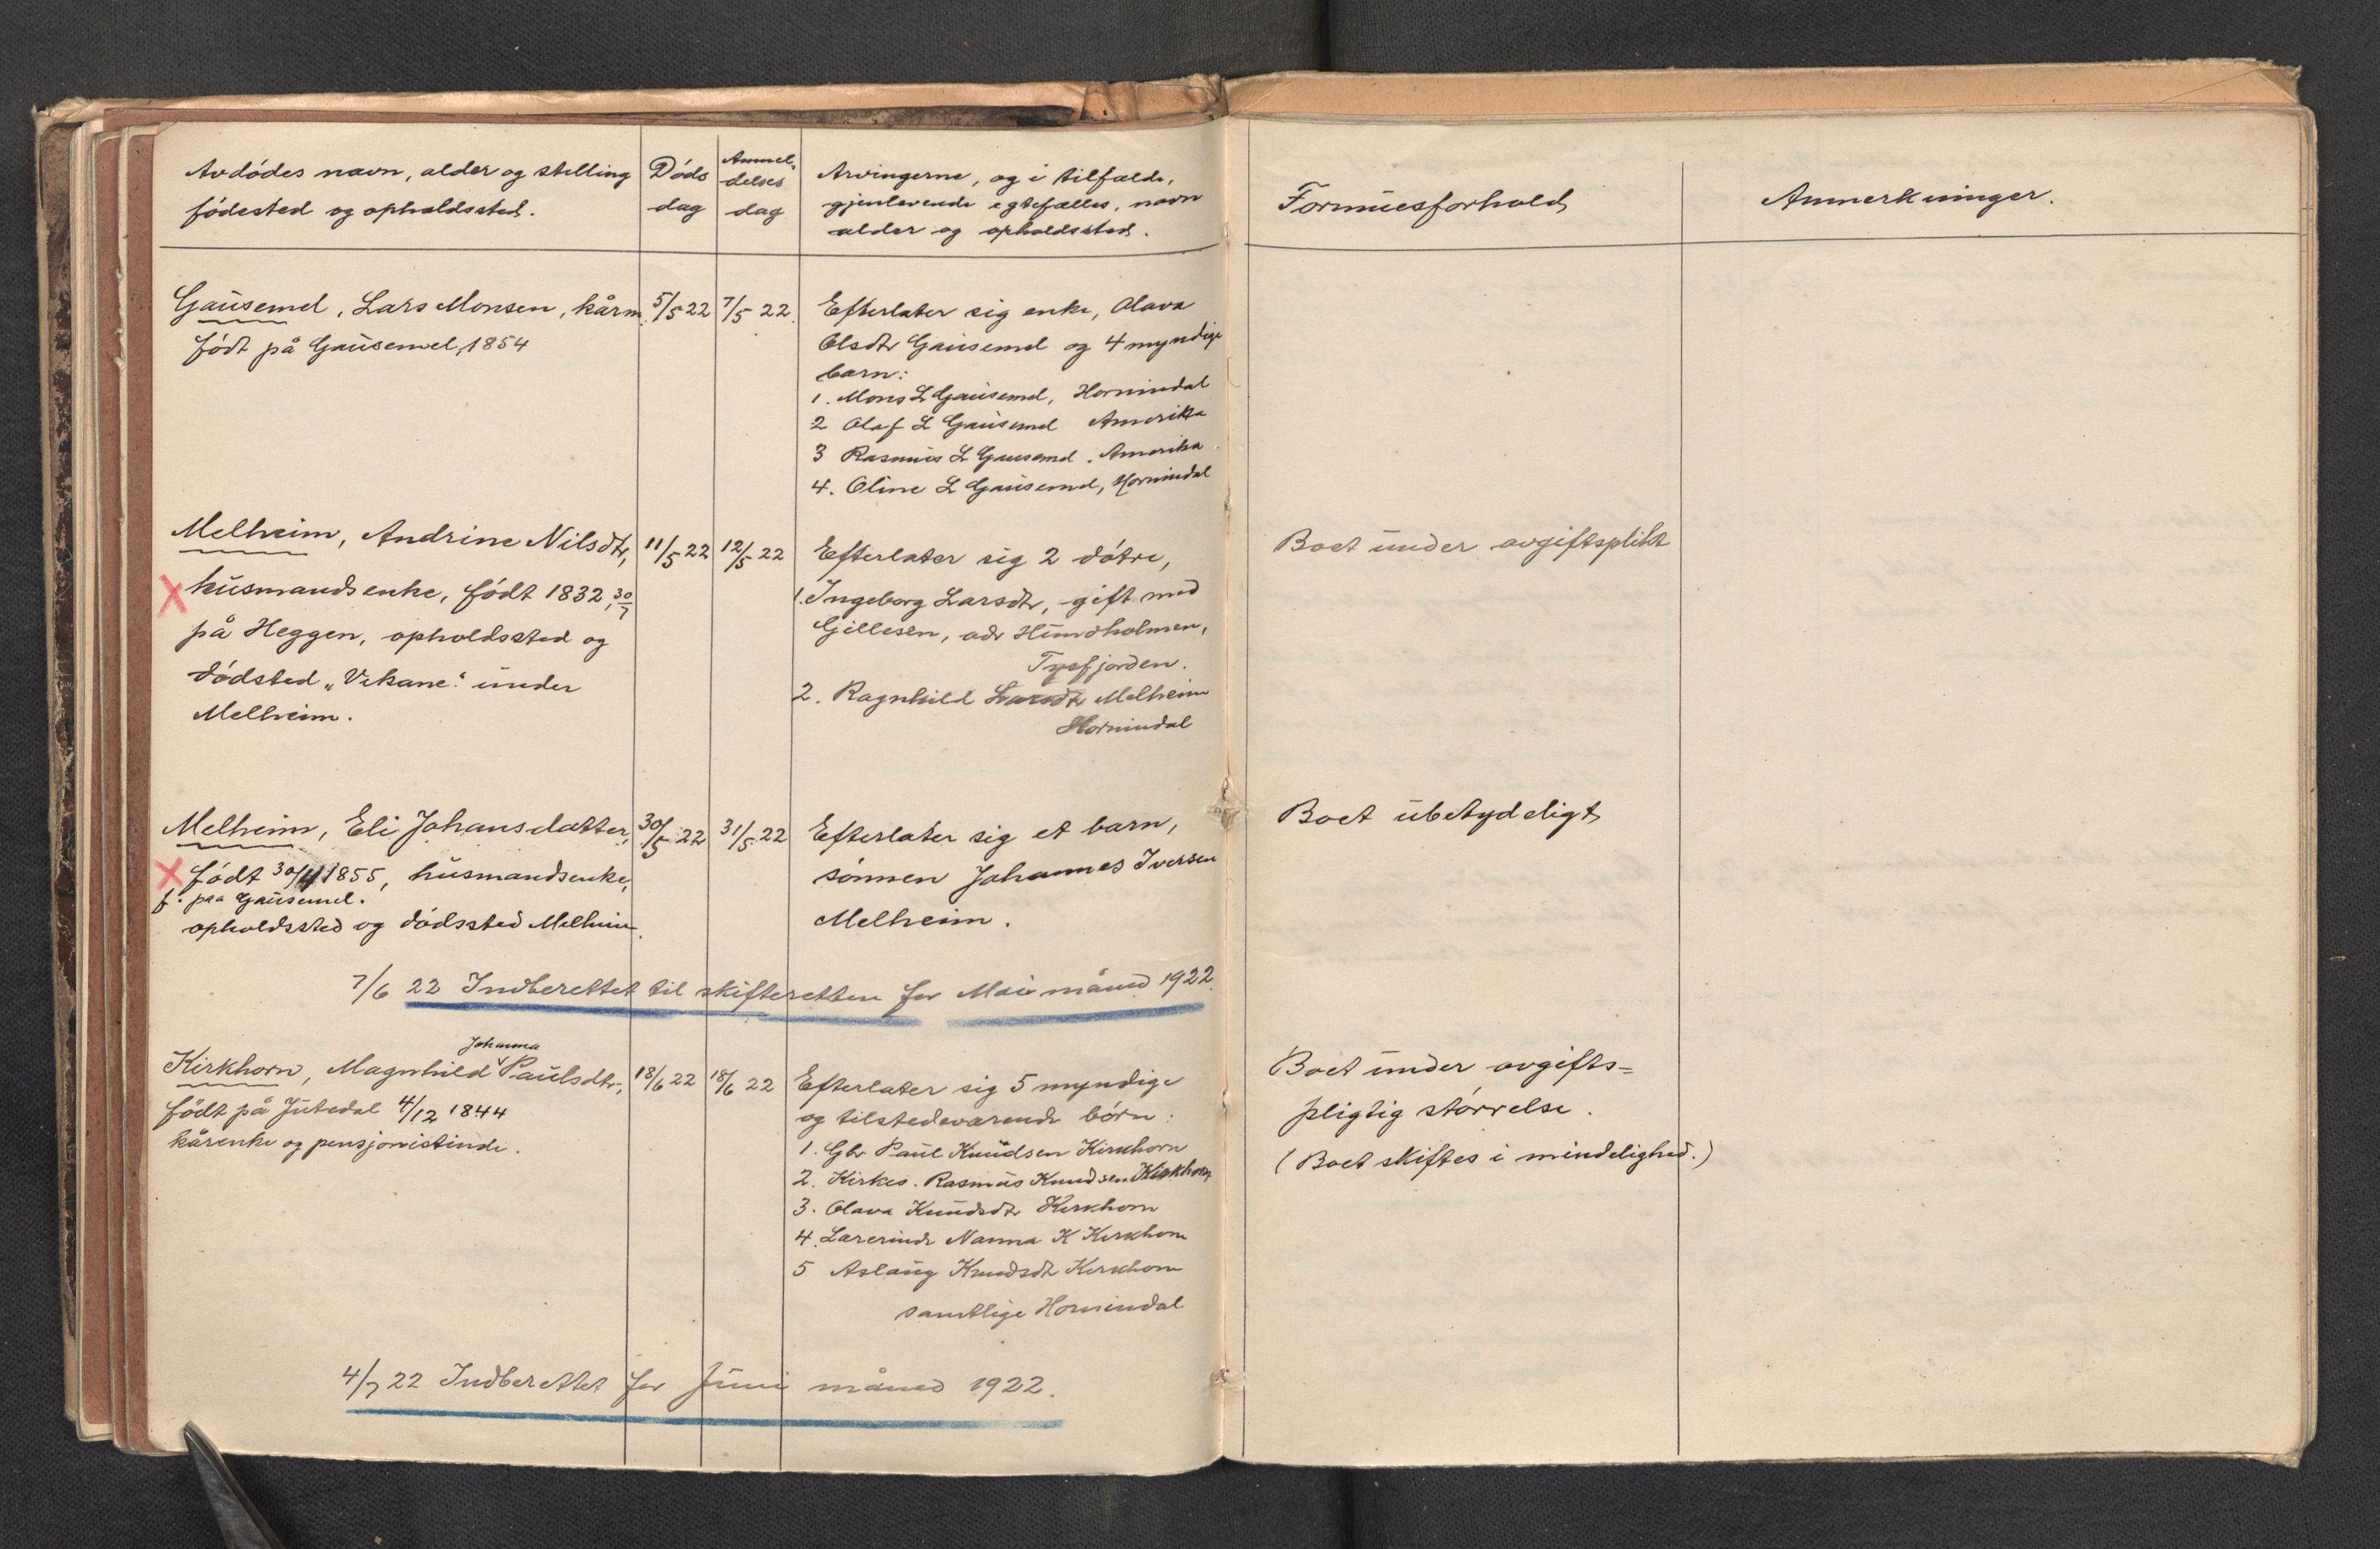 Avdódes navn, alder og stelling
fódested og opholdssted.
Dóds
dag
Anmel-
delses
dag
Arvingerne, og i tilfælde,
gjenlevende egtefælles, navn
alder og opholdssted.
Formuesforhold
Anmerkninger.
Gausemel, Lars Monsen, kårm.
5/5 22
7/5 22.
Efterlater sig enke, Olava
fódt på Gausemel, 1854
Olsdtr Gausemel og 4 myndige
barn:
1. Mons L Gausemel, Hornindal
2 Olaf L Gausemel Amerika
3 Rasmus L Gausemel. Amerika.
4. Oline L Gausemel, Hornindal
Melheim, Andrine Nilsdtr,
11/5 22
12/5 22
Efterlater sig 2 dótre,
Boet under avgiftsplikt
x husmandsenke, fódt 1832, 30/7
1. Ingeborg Larsdtr, gift med
på Heggen, opholdssted og
Gjellesen, adr Hundholmen,
Tysfjorden.
dódsted „Vikane" under
2. Ragnhild Larsdtr Melheim
Melheim.
Hornindal
Melheim, Eli Johansdatter,
30/5 22
31/5 22
Efterlater sig et barn,
Boet ubetydeligt
x fódt 30/4 1855, husmandsenke,
sónnen Johannes Iversen
f. paa Gausemel.
opholdssted og dódssted Melheim.
Melheim.
7/6 22 Indberettet til skifteretten for Mai måned 1922.
Johanna
Kirkhorn, Magnhild Paulsdtr.,
18/6 22
18/6 22
Efterlater sig 5 myndige
Boet under avgifts=
fódt på Jutedal 4/12 1844
og tilstedeværende bórn:
pligtig stórrelse.
kårenke og pensjonistinde.
1. Gbr Paul Knudsen Kirkhorn
(Boet skiftes i mindelighed.)
2. Kirkes. Rasmus Knudsen Kirkhorn
3. Olava Knudsdtr Kirkhorn
4. Lærerinde Nanna K Kirkhorn
5 Aslaug Knudsdtr Kirkhorn
samtlige Hornindal
4/7 22 Indberettet for Juni måned 1922.